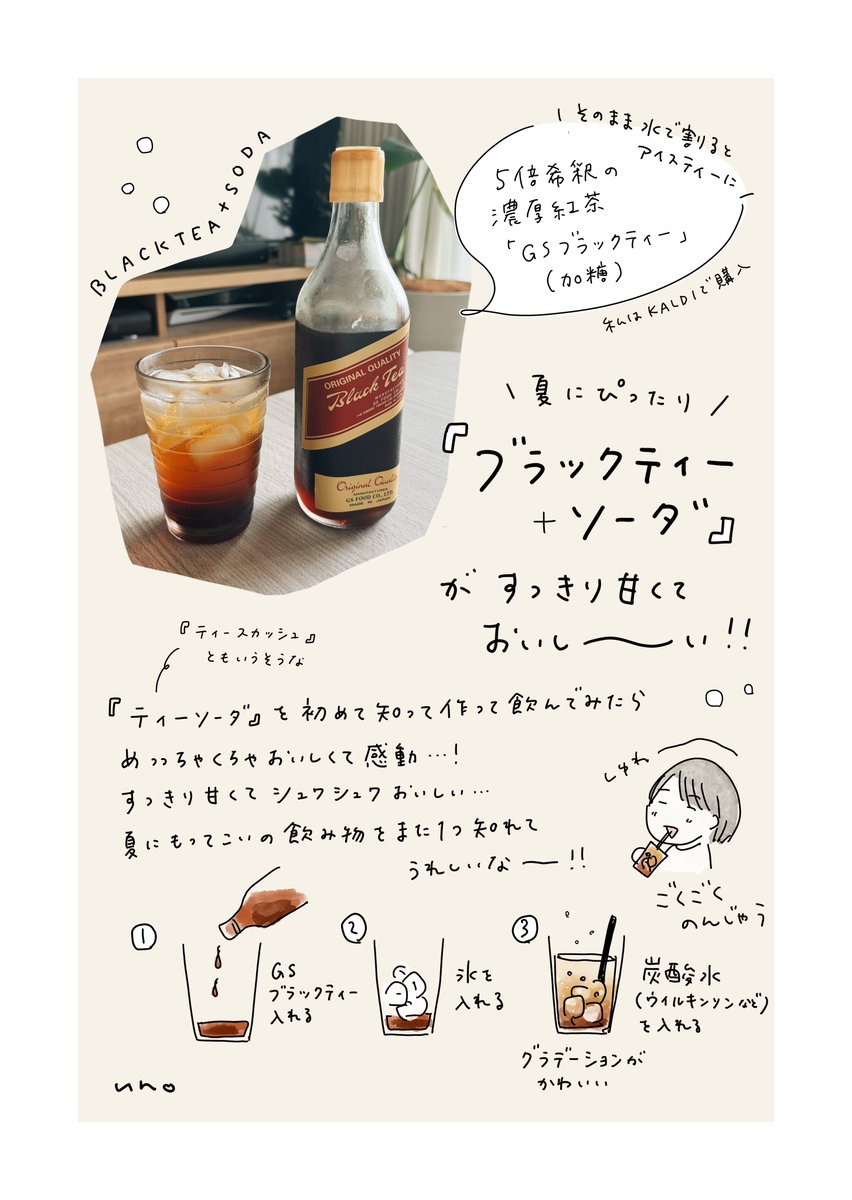 BLACKTEA+SODA
\そのまま水で割ると
アイスティーに/
5倍希釈の
濃厚紅茶
「GSブラックティー」
(加糖)
私はKALDIで購入
ORIGINAL QUALITY
Black Tea
Original Quality
MANUFACTURED
GS FOOD CO., LTD.
MADE IN JAPAN
\夏にぴったり/
『ブラックティー
+ソーダ』
が すっきり甘くて
おいし〜い!!
『ティースカッシュ』
ともいうそうな
『ティーソーダ』を初めて知って作って飲んでみたら
めっっちゃくちゃおいしくて感動…!
すっきり甘くてシュワシュワおいしい…
夏にもってこいの飲み物をまた1つ知れて
うれしいなー!!
しゅわ
ごくごく
のんじゃう
①
GS
ブラックティー
入れる
②
氷を
入れる
③
炭酸水
(ウィルキンソンなど)
を入れる
グラデーションが
かわいい
uno